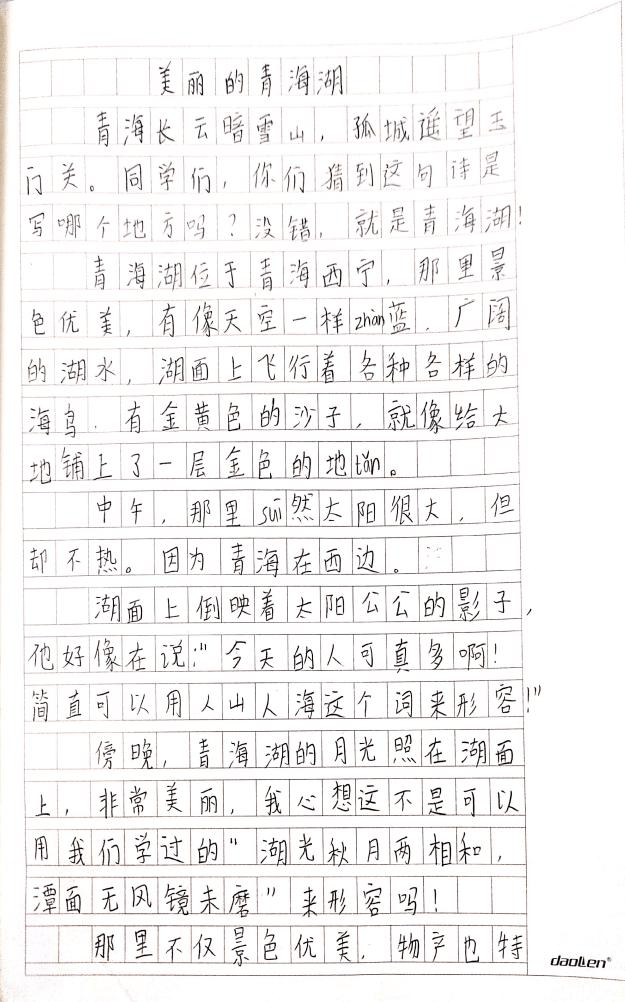 美丽的青海湖
青海长云暗雪山，孤城遥望玉
门关。同学们，你们猜到这句诗是
写哪个地方吗？没错，就是青海湖！
青海湖位于青海西宁，那里景
色优美，有像天空一样zhàn蓝.广阔
的湖水，湖面上飞行着各种各样的
海鸟.有金黄色的沙子，就像给大
地铺上了一层金色的地tǎn。
中午，那里suī然太阳很大，但
却不热。因为青海在西边。
湖面上倒映着太阳公公的影子，
他好像在说:"今天的人可真多啊！
简直可以用人山人海这个词来形容！"
傍晚，青海湖的月光照在湖面
上，非常美丽，我心想这不是可以
用我们学过的"湖光秋月两相和，
潭面无风镜未磨"来形容吗！
那里不仅景色优美.物产也特
daolien®